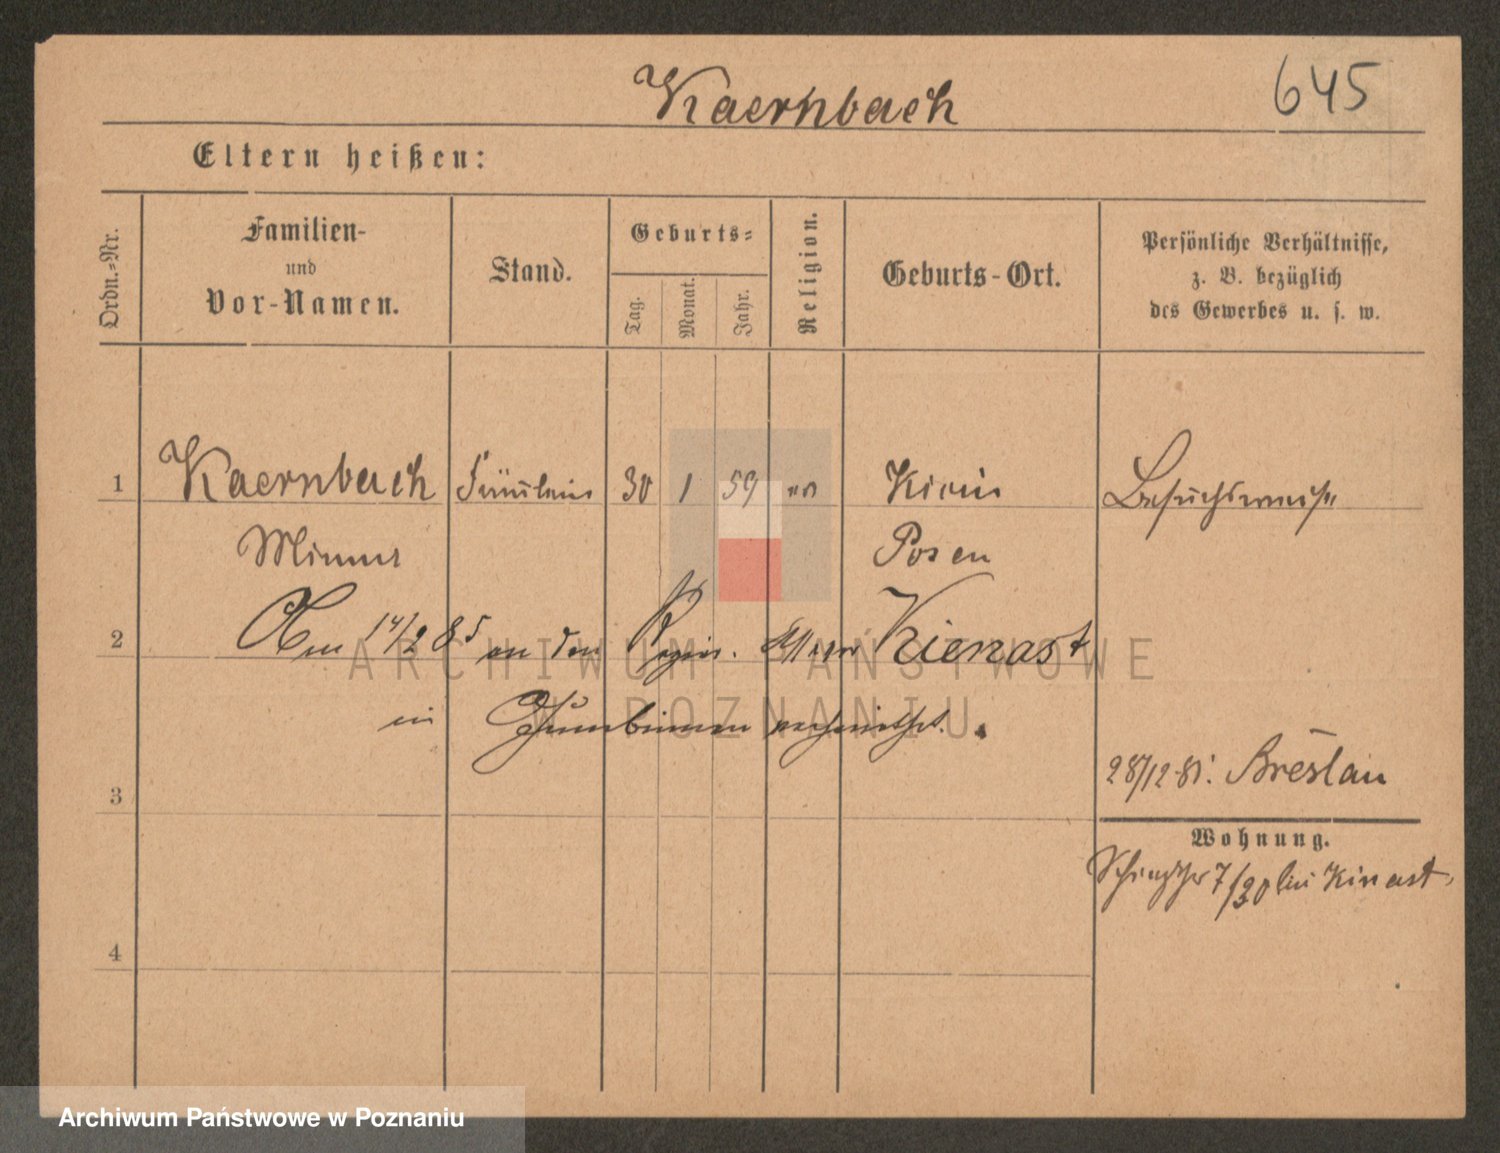 Kaernbach
645
Eltern heißen:
Ordn.-Nr.
Familien-
und
Vor-Namen.
Stand.
Geburts-
Tag.
Monat.
Jahr.
Religion.
Geburts-Ort.
Persönliche Verhältnisse,
z. B. bezüglich
des Gewerbes u. s. w.
1 Kaernbach Fräulein 30 1 59 ev Besuchsweise
Minna Posen
2 Am 14/2 85 an den Kienast
in Gumbinnen verheirathet.
28/12 81. Breslau
3
Wohnung.
7/20 bei Kinast
4
ARCHIWUM PAŃSTWOWE
W POZNANIU
Archiwum Państwowe w Poznaniu